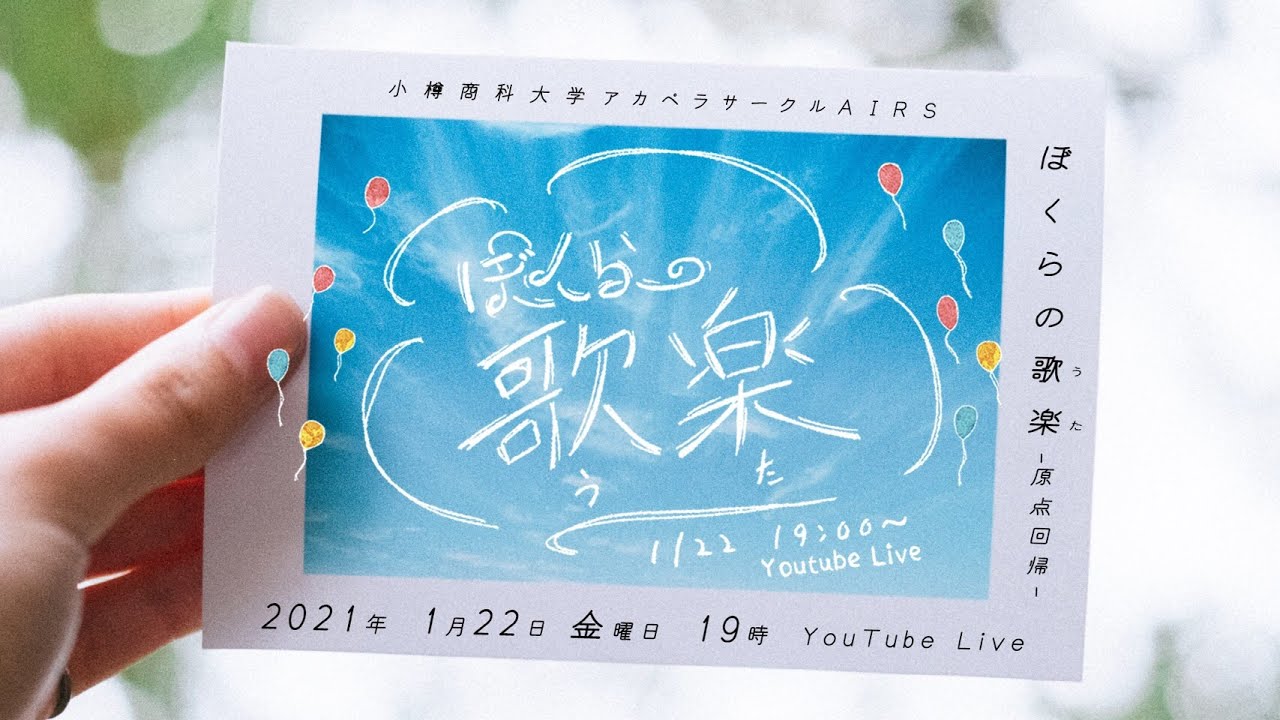 小樽商科大学アカペラサークルAIRS
ぼくらの歌楽-原点回帰-
うた
ぼくらの
歌楽
うた
1/22 19:00~
Youtube Live
2021年 1月22日 金曜日 19時 YouTube Live